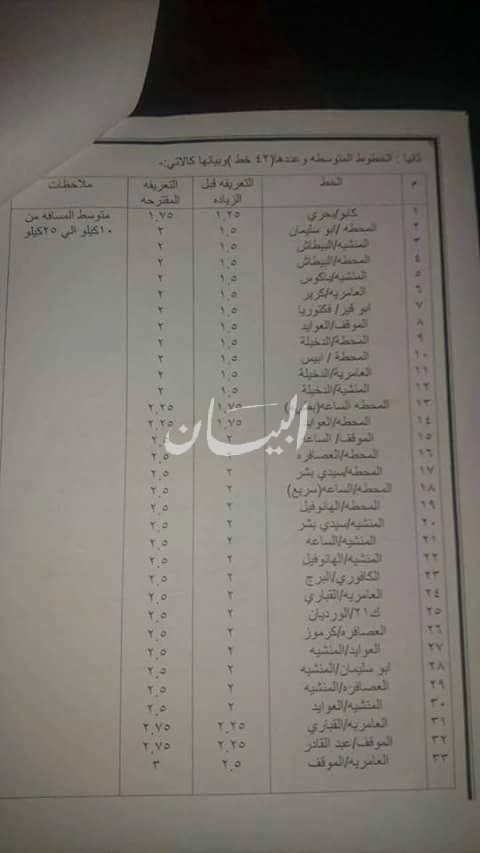 ثانيا : الخطوط المتوسطه وعددها(٤٢ خط )وبيانها كالاتي:-
م الخط التعريفه قبل الزياده التعريفه المقترحه ملاحظات
١ كابو/بحري ١.٢٥ ١.٧٥ متوسط المسافه من ١٠كيلو الي ٢٥كيلو
٢ المحطه /ابو سليمان ١.٥ ٢
٣ المنشيه/البيطاش ١.٥ ٢
٤ المحطه/البيطاش ١.٥ ٢
٥ المنشيه/باكوس ١.٥ ٢
٦ العامريه/كرير ١.٥ ٢
٧ ابو قير/ فكتوريا ١.٥ ٢
٨ الموقف/العوايد ١.٥ ٢
٩ المحطة/الدخيلة ١.٥ ٢
١٠ المحطة / ابيس ١.٥ ٢
١١ العامرية/الدخيلة ١.٥ ٢
١٢ المنشية/الدخيلة ١.٥ ٢
١٣ المحطه الساعه ١.٧٥ ٢.٢٥
١٤ المحطه/العوايد ١.٧٥ ٢.٢٥
١٥ الموقف/ الساعه ٢ ٢.٥
١٦ المحطه/العصافره ٢ ٢.٥
١٧ المحطه/سيدي بشر ٢ ٢.٥
١٨ المحطه/الساعه(سريع) ٢ ٢.٥
١٩ المحطه/الهانوفيل ٢ ٢.٥
٢٠ المنشيه/سيدي بشر ٢ ٢.٥
٢١ المنشيه/الساعه ٢ ٢.٥
٢٢ المنشيه/الهانوفيل ٢ ٢.٥
٢٣ الكافوري/البرج ٢ ٢.٥
٢٤ العامريه/القباري ٢ ٢.٥
٢٥ ك٢١/الورديان ٢ ٢.٥
٢٦ العصافره/كرموز ٢ ٢.٥
٢٧ العوايد/المنشيه ٢ ٢.٥
٢٨ ابو سليمان/المنشيه ٢ ٢.٥
٢٩ العصافره/المنشيه ٢ ٢.٥
٣٠ المنشيه/العوايد ٢ ٢.٥
٣١ العامريه/القباري ٢.٢٥ ٢.٧٥
٣٢ الموقف/عبد القادر ٢.٢٥ ٢.٧٥
٣٣ العامريه/الموقف ٢.٥ ٣
البيان